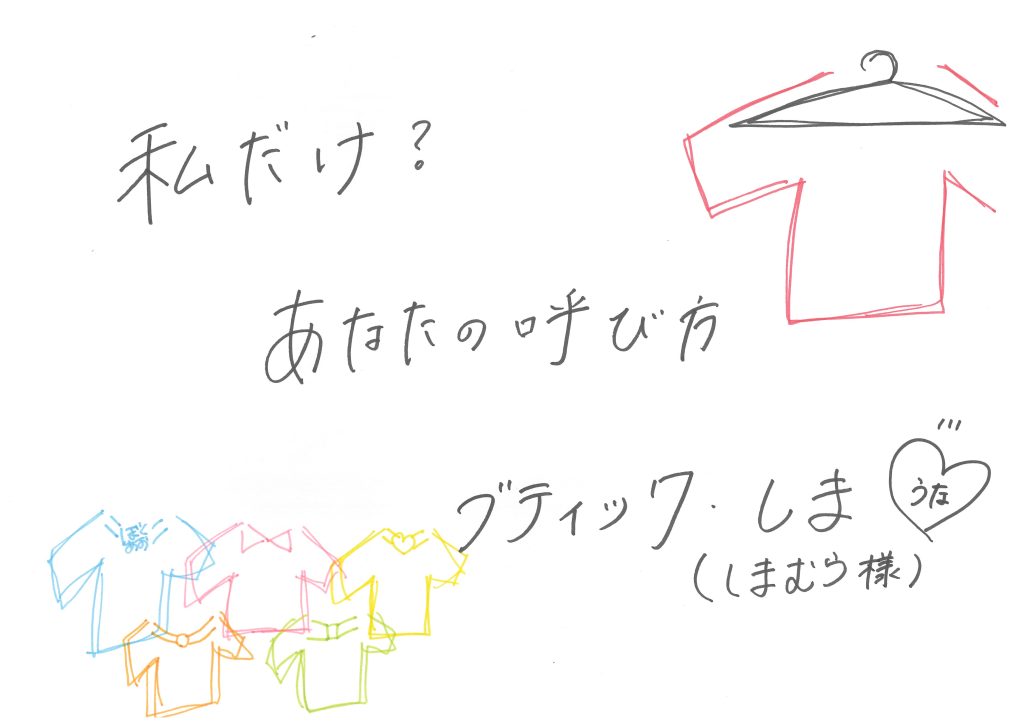 私だけ?
あなたの呼び方
ブティック・しま
うな
(しまむら様)